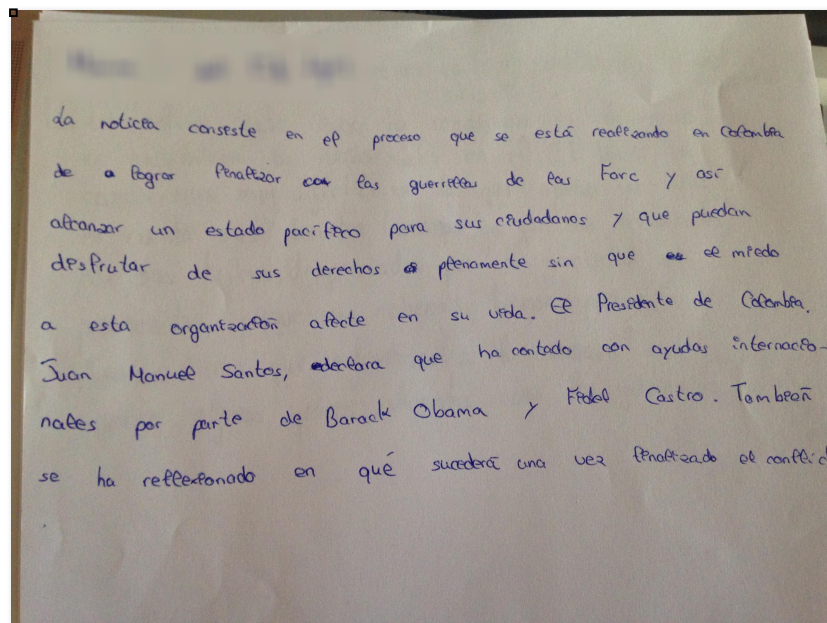 La noticia consiste en el proceso que se está realizando en Colombia
de a lograr finalizar con las guerrillas de las Farc y así
alcanzar un estado pacífico para sus ciudadanos y que puedan
disfrutar de sus derechos plenamente sin que el miedo
a esta organización afecte en su vida. El Presidente de Colombia.
Juan Manuel Santos, declara que ha contado con ayudas internacio-
nales por parte de Barack Obama y Fidel Castro. También
se ha reflexionado en qué sucederá una vez finalizado el conflic